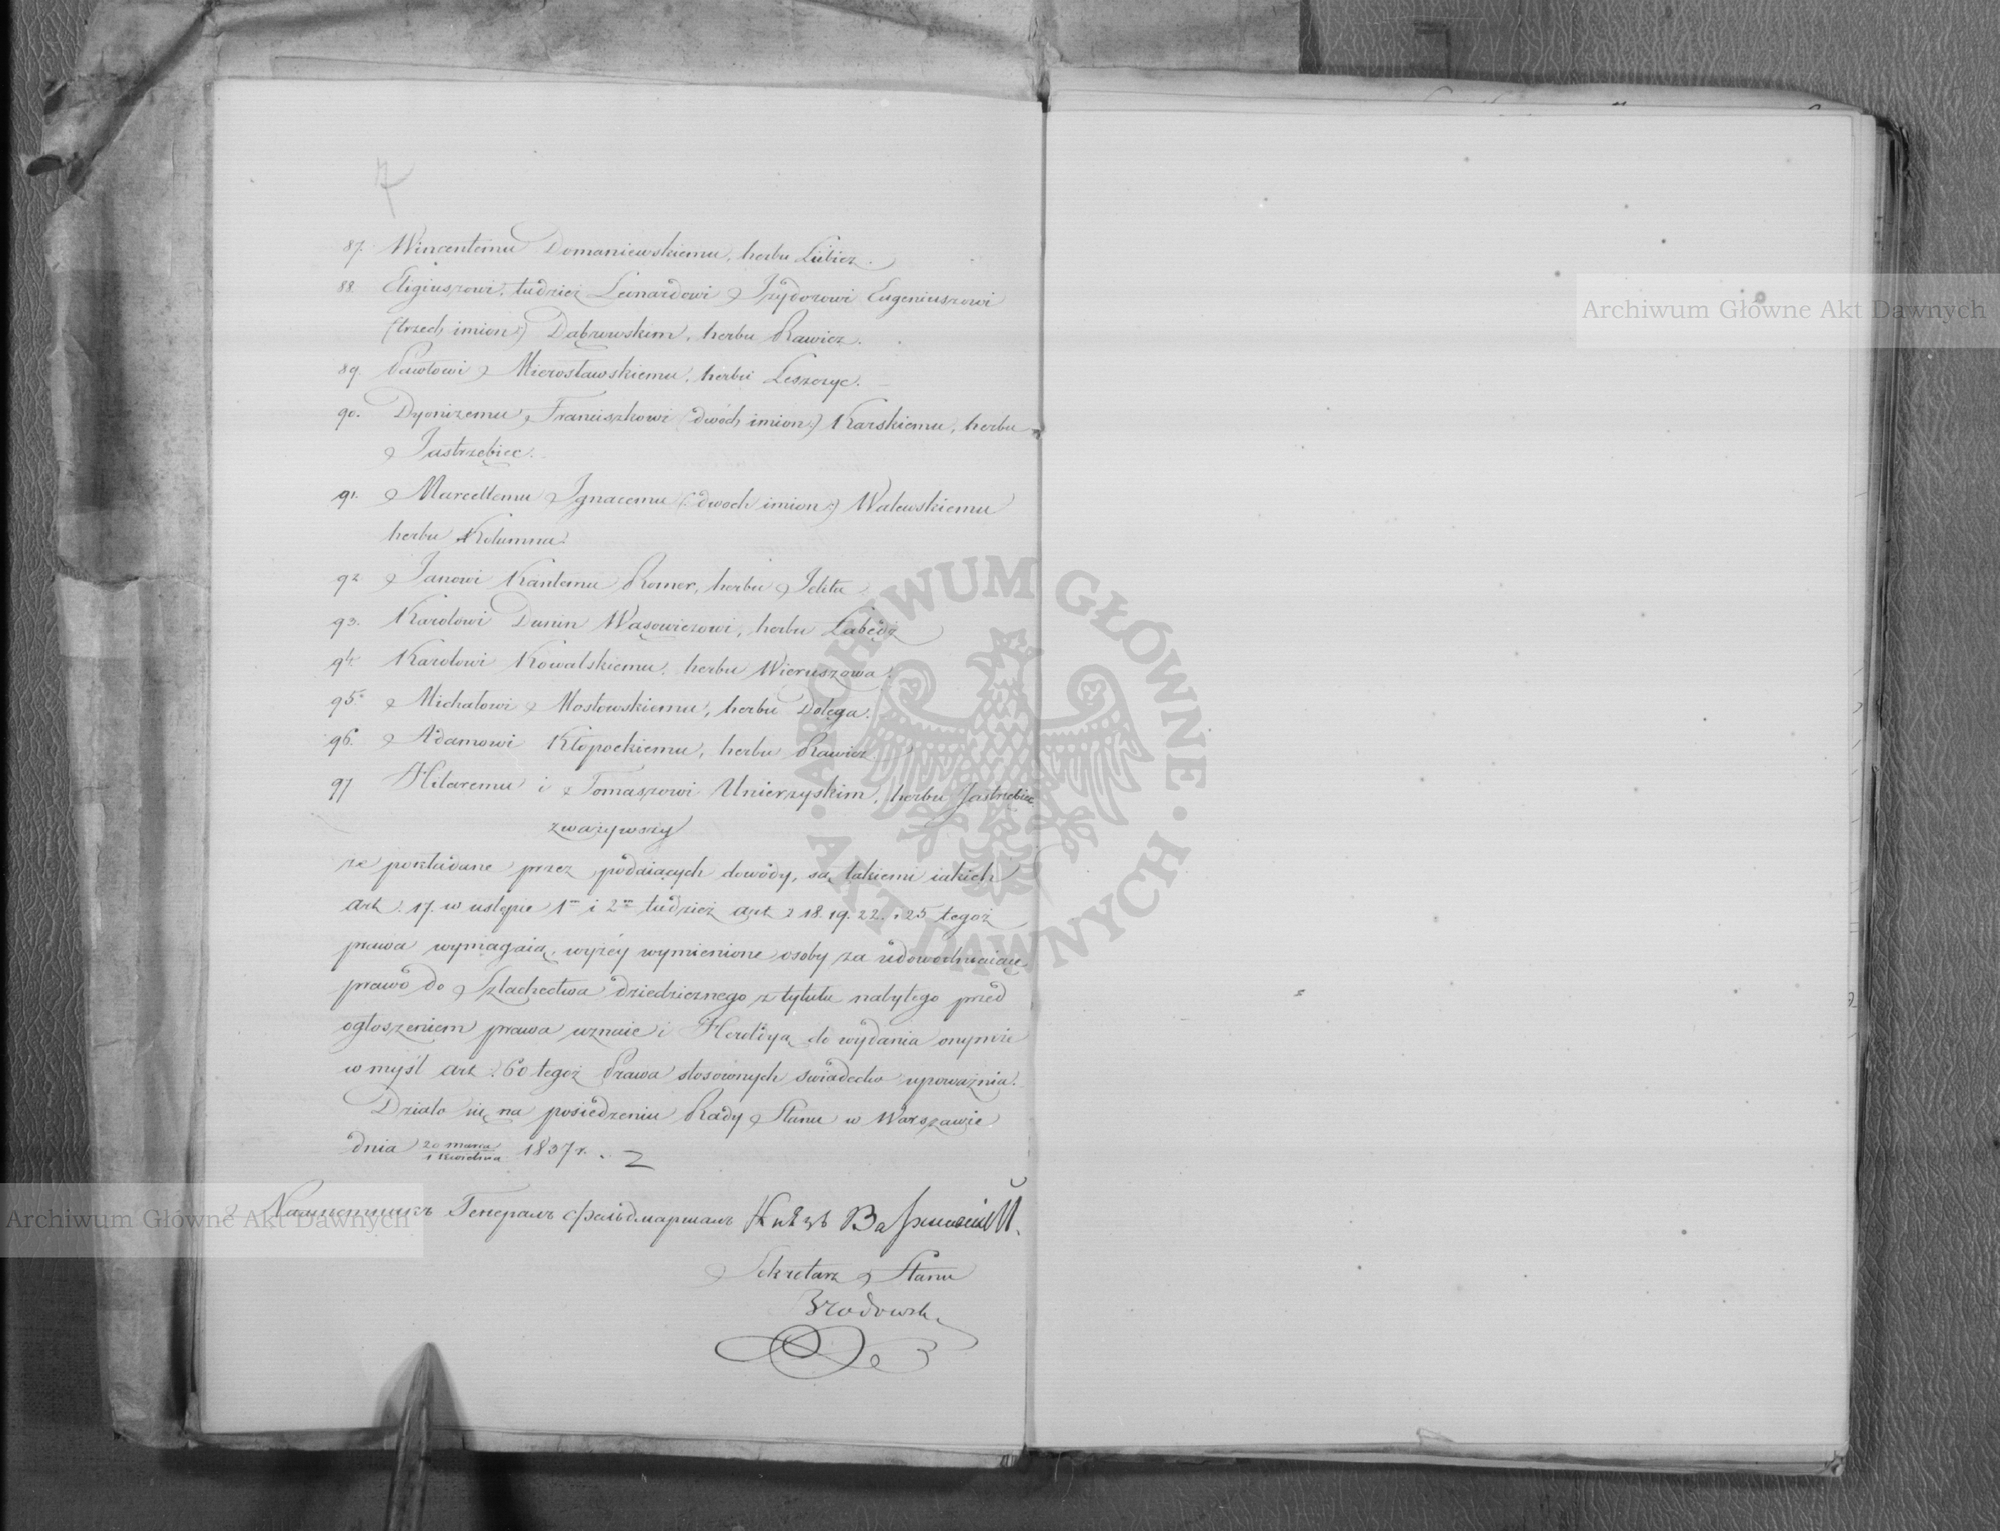 7
87. Wincentemu Domaniewskiemu, herbu Lubicz.
88. Eligiuszowi, tudzież Leonardowi Izydorowi Eugeniuszowi
(trzech imion:) Dąbrowskim, herbu Rawicz.
89. Pawłowi Mierosławskiemu, herbu Leszczyc.
90. Dyonizemu Franciszkowi (dwóch imion:) Karskiemu, herbu
Jastrzębiec.
91. Marcellemu Ignacemu (:dwoch imion:) Walewskiemu
herbu Kolumna.
92. Janowi Kantemu Romer, herbu Jelita
93. Karolowi Dunin Wąsowiczowi, herbu Łabędź
94. Karolowi Kowalskiemu, herbu Wieruszowa.
95. Michałowi Mosłowskiemu, herbu Dołęga.
96. Adamowi Kłopockiemu, herbu Rawicz.
97 Hilaremu i Tomaszowi Unierzyskim, herbu Jastrzębiec
zważywszy
że pokładane przez podaiących dowody, są takiemi iakich
art. 17. w ustępie 1m i 2m tudzież art 18. 19. 22. i 25 tegoż
prawa wymagaią, wyżéy wymienione osoby za udowodniaiące
prawo do Szlachectwa dziedzicznego z tytułu nabytego przed
ogłoszeniem prawa uznaie i Heroldyą do wydania onymże
w myśl art. 60 tegoż Prawa stosownych świadectw upoważnia.
Działo się na posiedzeniu Rady Stanu w Warszawie
dnia 20 marca / 1 kwietnia 1837 r.
Намѣстникъ Генералъ Фельдмаршалъ Князь Варшавскій
Sekretarz Stanu
Brodowski
Archiwum Główne Akt Dawnych
Archiwum Główne Akt Dawnych
ARCHIWUM GŁÓWNE · AKT DAWNYCH ·